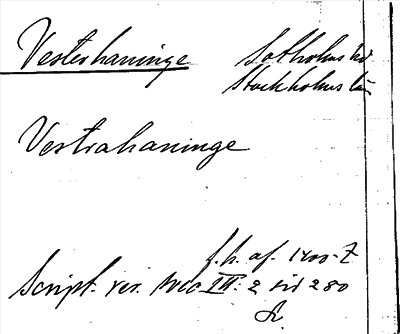 Vesterhaninge Sotholms hd
Stockholms län
Vestrahaninge
f.h. af 1400-t
Script. rer. svec. III: 2 sid 280